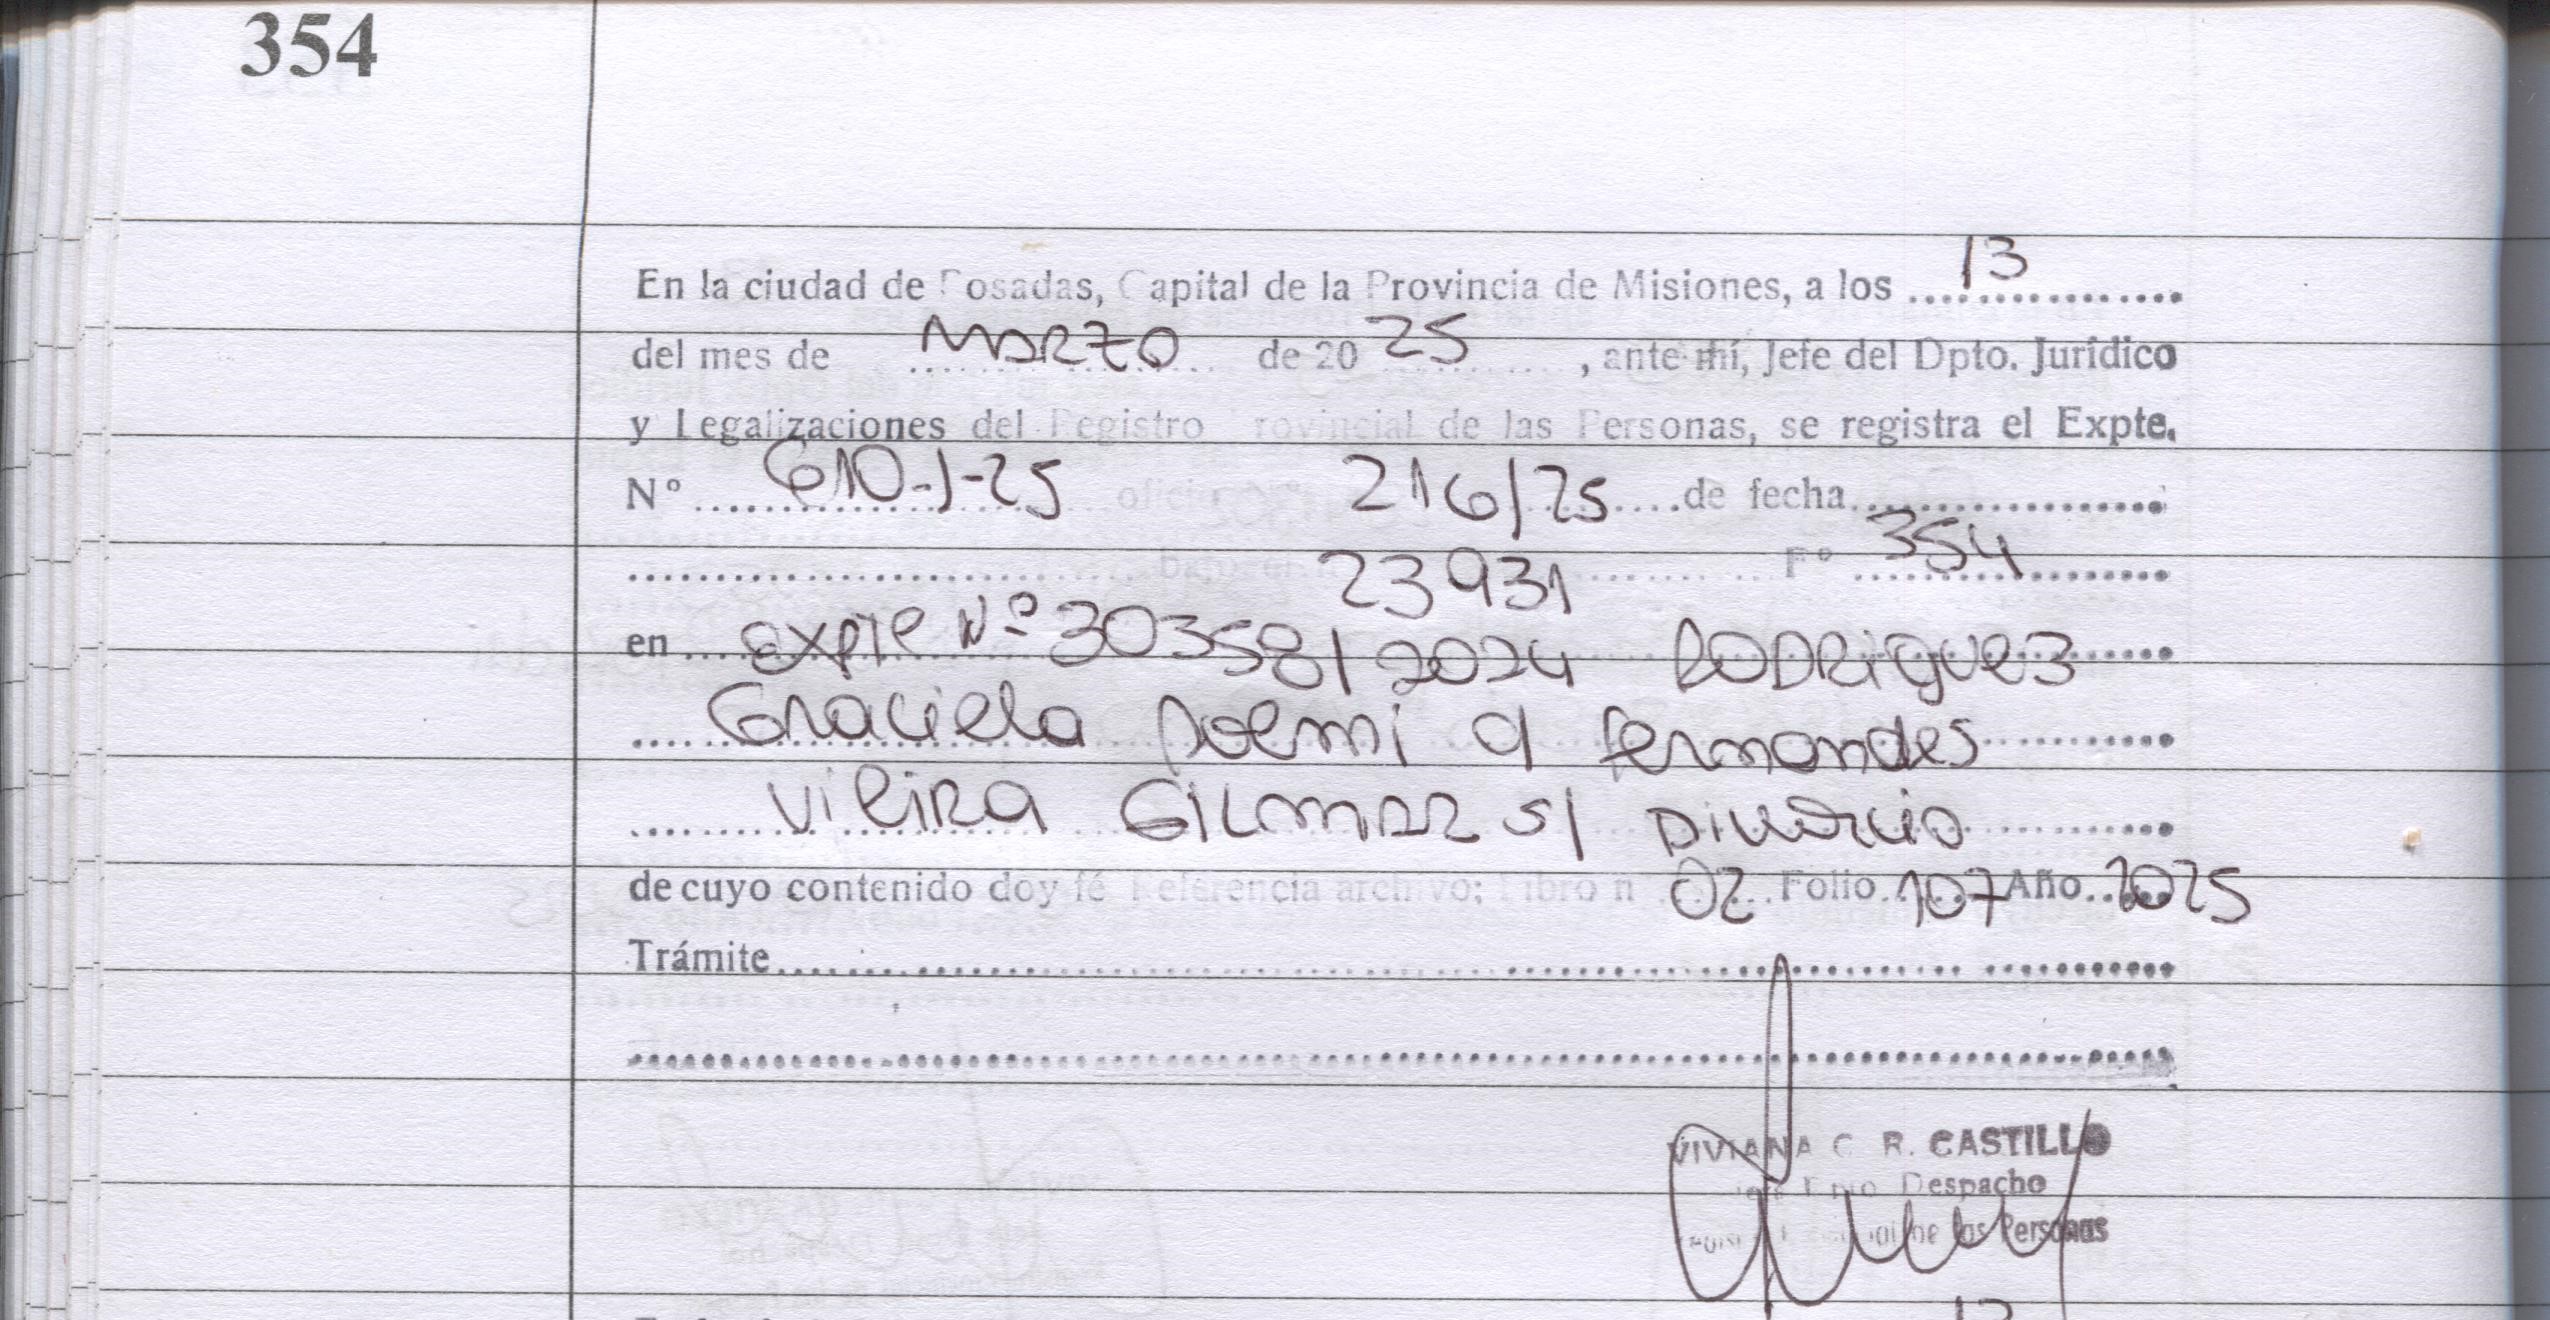 354
En la ciudad de Posadas, Capital de la Provincia de Misiones, a los 13
del mes de MARZO de 20 25, ante mí, Jefe del Dpto. Jurídico
y Legalizaciones del Registro Provincial de las Personas, se registra el Expte.
N° 610-J-25 oficio N° 216/25 de fecha
bajo el 23931 F° 354
en expte Nº 30358/2024 RODRiguez
Graciela Noemi c/ Fernandes
Vieira GILMAR s/ Divorcio
de cuyo contenido doy fé Referencia archivo; Libro n° 02 Folio 107 Año 2025
Trámite
VIVIANA C. R. CASTILLO
Jefe Dpto Despacho
de las Personas